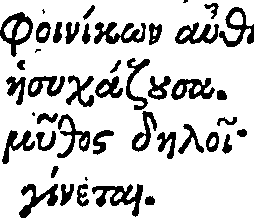 Φοινίκων αὖθι
ἡσυχάζουσα.
μῦθος δηλοῖ·
γίνεται.